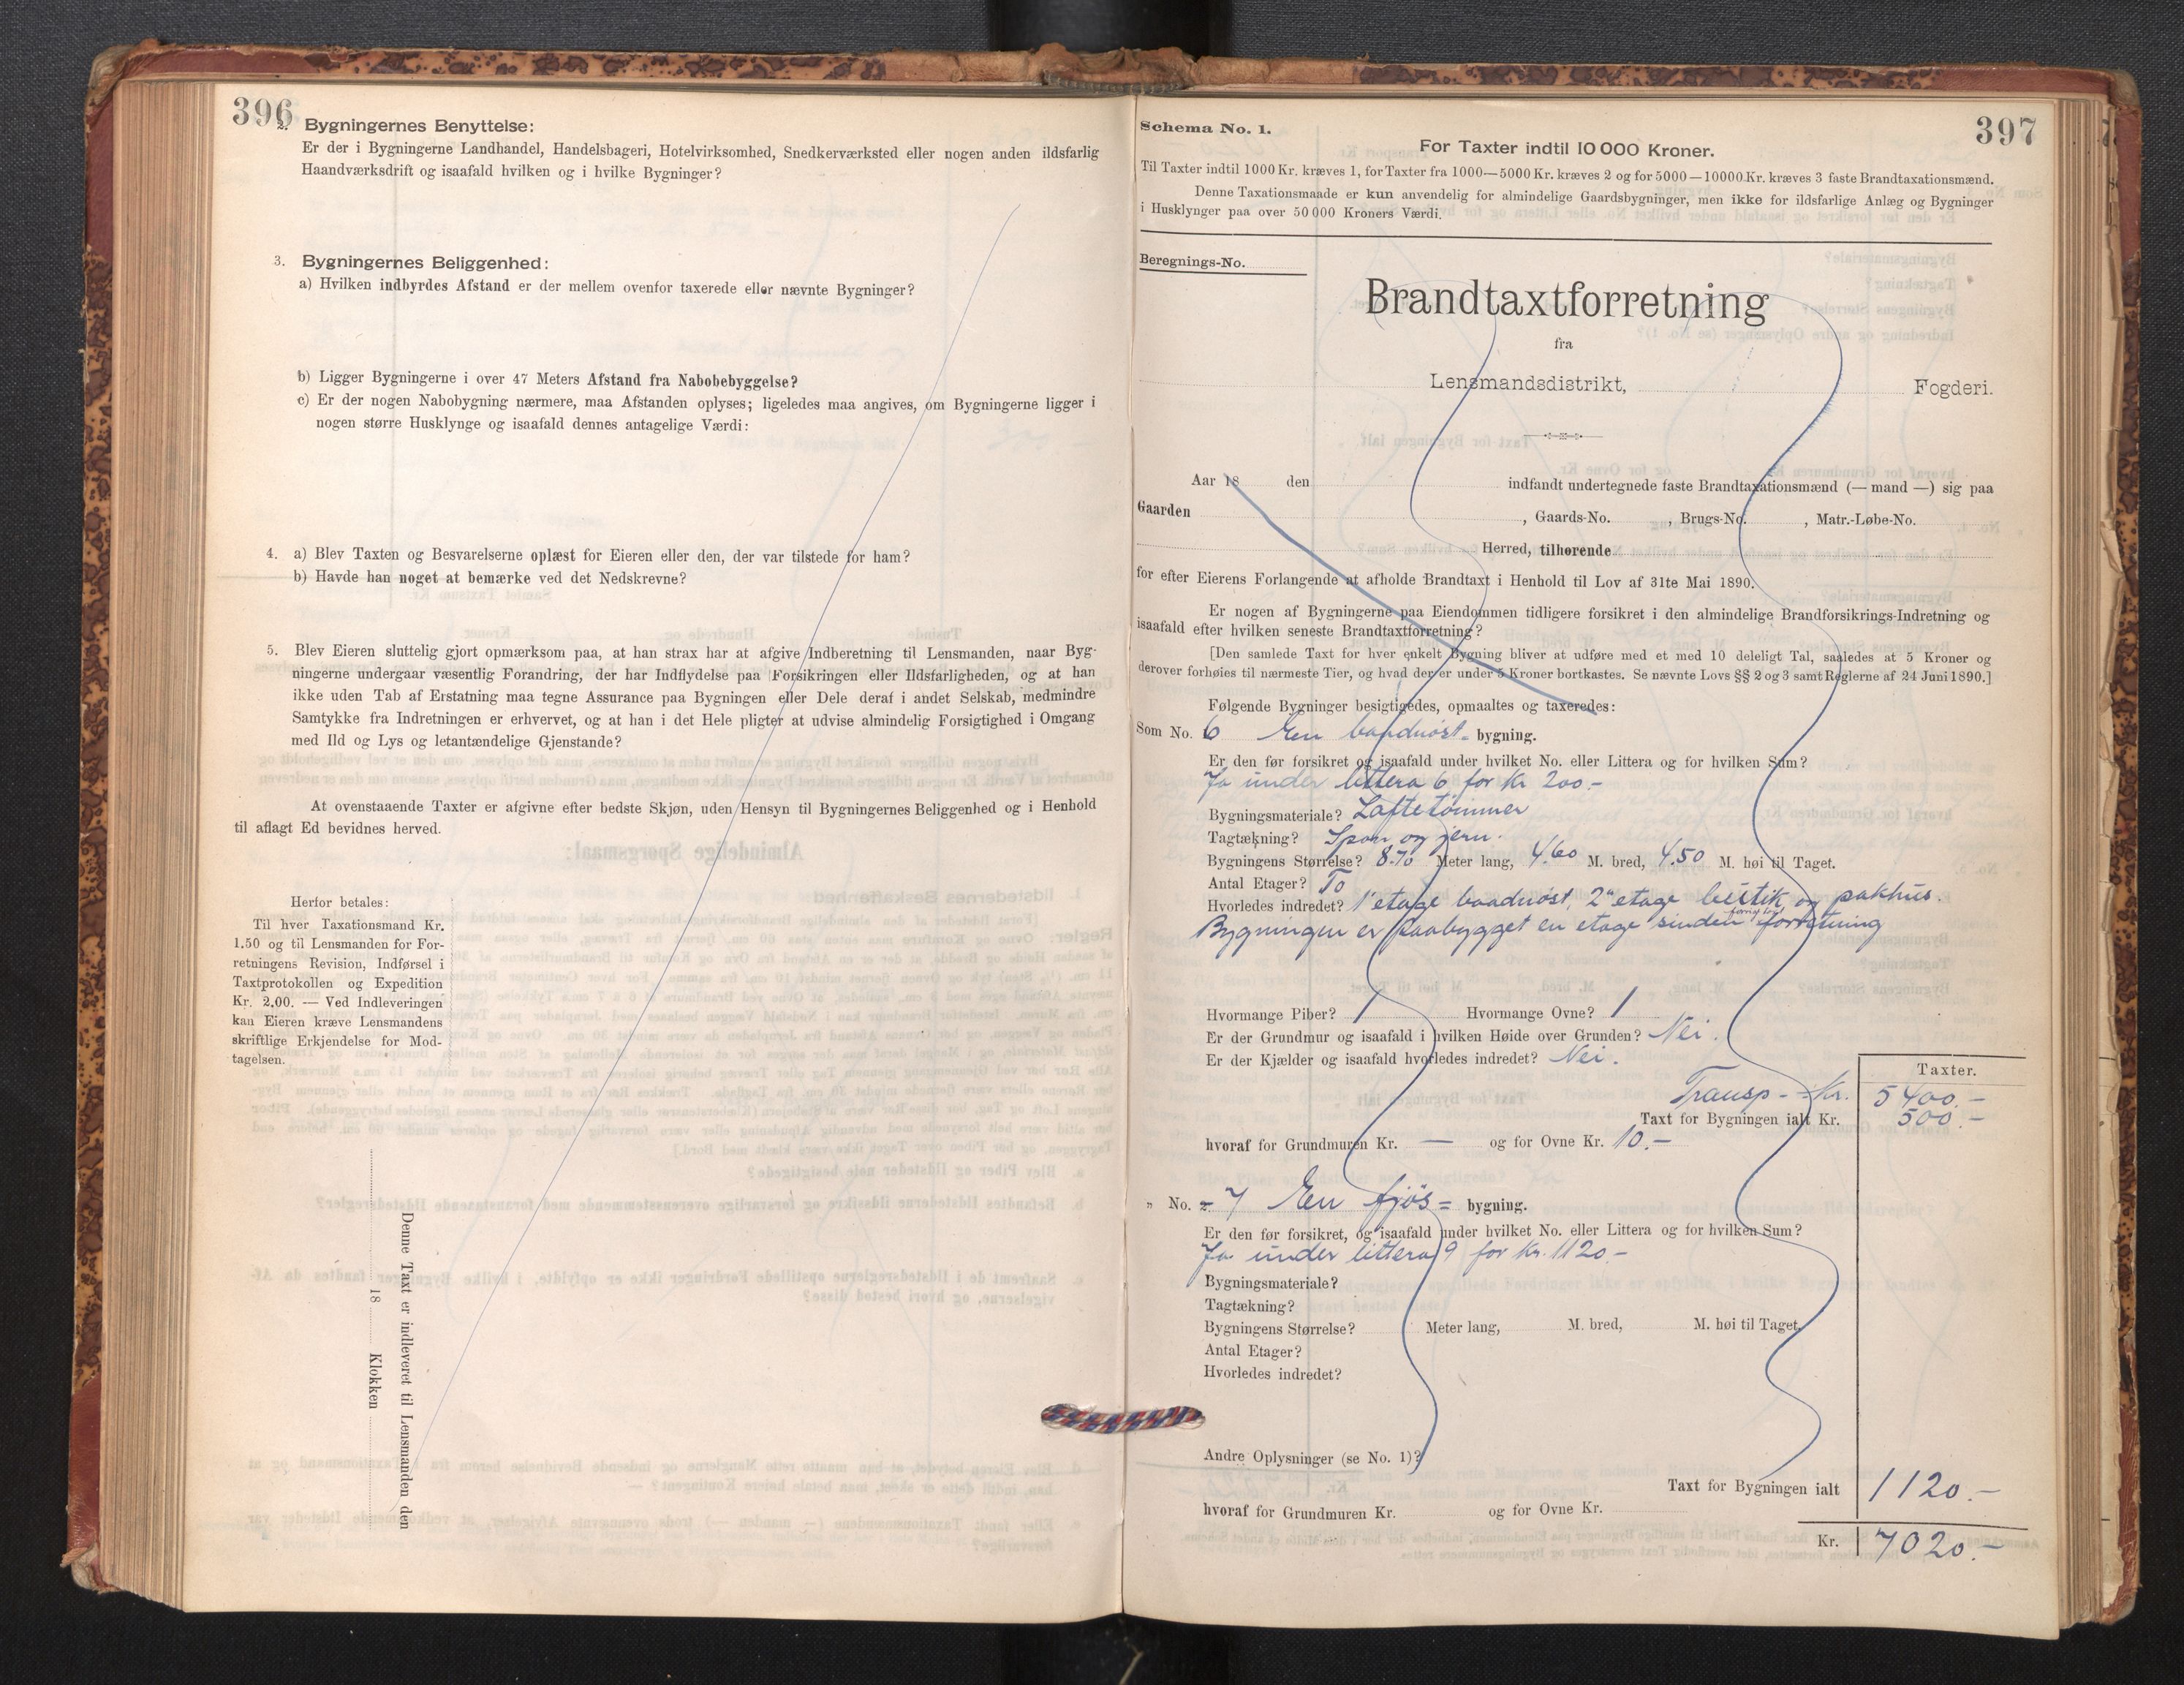 396
2. Bygningernes Benyttelse:
Er der i Bygningerne Landhandel, Handelsbageri, Hotelvirksomhed, Snedkerværksted eller nogen anden ildsfarlig
Haandværksdrift og isaafald hvilken og i hvilke Bygninger?
3. Bygningernes Beliggenhed:
a) Hvilken indbyrdes Afstand er der mellem ovenfor taxerede eller nævnte Bygninger?
b) Ligger Bygningerne i over 47 Meters Afstand fra Nabobebyggelse?
c) Er der nogen Nabobygning nærmere, maa Afstanden oplyses; ligeledes maa angives, om Bygningerne ligger i
nogen større Husklynge og isaafald dennes antagelige Værdi:
4. a) Blev Taxten og Besvarelserne oplæst for Eieren eller den, der var tilstede for ham?
b) Havde han noget at bemærke ved det Nedskrevne?
5. Blev Eieren sluttelig gjort opmærksom paa, at han strax har at afgive Indberetning til Lensmanden, naar Byg-
ningerne undergaar væsentlig Forandring, der har Indflydelse paa Forsikringen eller Ildsfarligheden, og at han
ikke uden Tab af Erstatning maa tegne Assurance paa Bygningen eller Dele deraf i andet Selskab, medmindre
Samtykke fra Indretningen er erhvervet, og at han i det Hele pligter at udvise almindelig Forsigtighed i Omgang
med Ild og Lys og letantændelige Gjenstande?
At ovenstaaende Taxter er afgivne efter bedste Skjøn, uden Hensyn til Bygningernes Beliggenhed og i Henhold
til aflagt Ed bevidnes herved.
Herfor betales:
Til hver Taxationsmand Kr.
1.50 og til Lensmanden for For-
retningens Revision, Indførsel i
Taxtprotokollen og Expedition
Kr. 2.00. — Ved Indleveringen
kan Eieren kræve Lensmandens
skriftlige Erkjendelse for Mod-
tagelsen.
Denne Taxt er indleveret til Lensmanden den
18 Klokken
397
Schema No. 1.
For Taxter indtil 10 000 Kroner.
Til Taxter indtil 1000 Kr. kræves 1, for Taxter fra 1000—5000 Kr. kræves 2 og for 5000—10000 Kr. kræves 3 faste Brandtaxationsmænd.
Denne Taxationsmaade er kun anvendelig for almindelige Gaardsbygninger, men ikke for ildsfarlige Anlæg og Bygninger
i Husklynger paa over 50 000 Kroners Værdi.
Beregnings-No.
Brandtaxtforretning
fra
Lensmandsdistrikt, Fogderi.
Aar 18 den indfandt undertegnede faste Brandtaxationsmænd (— mand —) sig paa
Gaarden , Gaards-No. , Brugs-No. , Matr.-Løbe-No.
Herred, tilhørende
for efter Eierens Forlangende at afholde Brandtaxt i Henhold til Lov af 31te Mai 1890.
Er nogen af Bygningerne paa Eiendommen tidligere forsikret i den almindelige Brandforsikrings-Indretning og
isaafald efter hvilken seneste Brandtaxtforretning?
[Den samlede Taxt for hver enkelt Bygning bliver at udføre med et med 10 deleligt Tal, saaledes at 5 Kroner og
derover forhøies til nærmeste Tier, og hvad der er under 5 Kroner bortkastes. Se nævnte Lovs §§ 2 og 3 samt Reglerne af 24 Juni 1890.]
Følgende Bygninger besigtigedes, opmaaltes og taxeredes:
Som No. 6 En baadnöst- bygning.
Er den før forsikret og isaafald under hvilket No. eller Littera og for hvilken Sum?
Ja under littera 6 for Kr 200.-
Bygningsmateriale? Laftetömmer
Tagtækning? Spon og jern.
Bygningens Størrelse? 8.70 Meter lang, 4.60 M. bred, 4.50 M. høi til Taget.
Antal Etager? To
Hvorledes indredet? 1' etage baadnöst, 2" etage og pakhus.
Bygningen er paabygget en etage siden forretning
Hvormange Piber? 1 Hvormange Ovne? 1
Er der Grundmur og isaafald i hvilken Høide over Grunden? Nei.
Er der Kjælder og isaafald hvorledes indredet? Nei.
Taxter.
Transp - Kr. 5400.-
Taxt for Bygningen ialt Kr. 500.-
hvoraf for Grundmuren Kr. — og for Ovne Kr. 10.-
" No. 7 En fjös- bygning.
Er den før forsikret, og isaafald under hvilket No. eller Littera og for hvilken Sum?
Ja under littera 9 for Kr. 1120.-
Bygningsmateriale?
Tagtækning?
Bygningens Størrelse? Meter lang, M. bred, M. høi til Taget.
Antal Etager?
Hvorledes indredet?
Andre Oplysninger (se No. 1)?
Taxt for Bygningen ialt 1120.-
hvoraf for Grundmuren Kr. og for Ovne Kr.
Kr. 7020.-